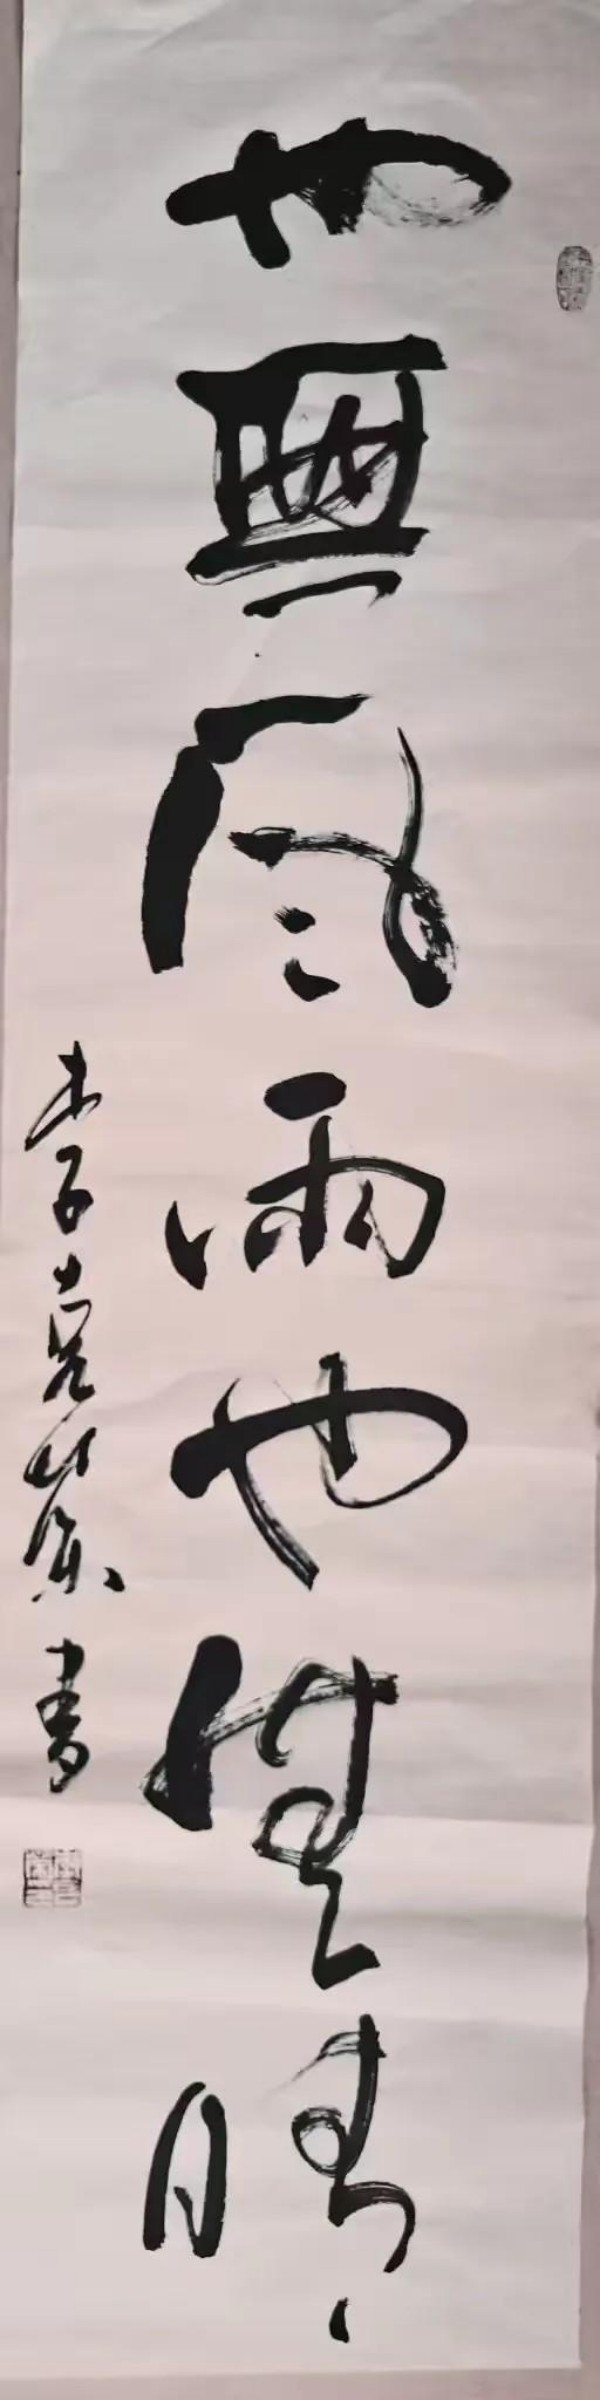 也無風雨也無晴
李
書